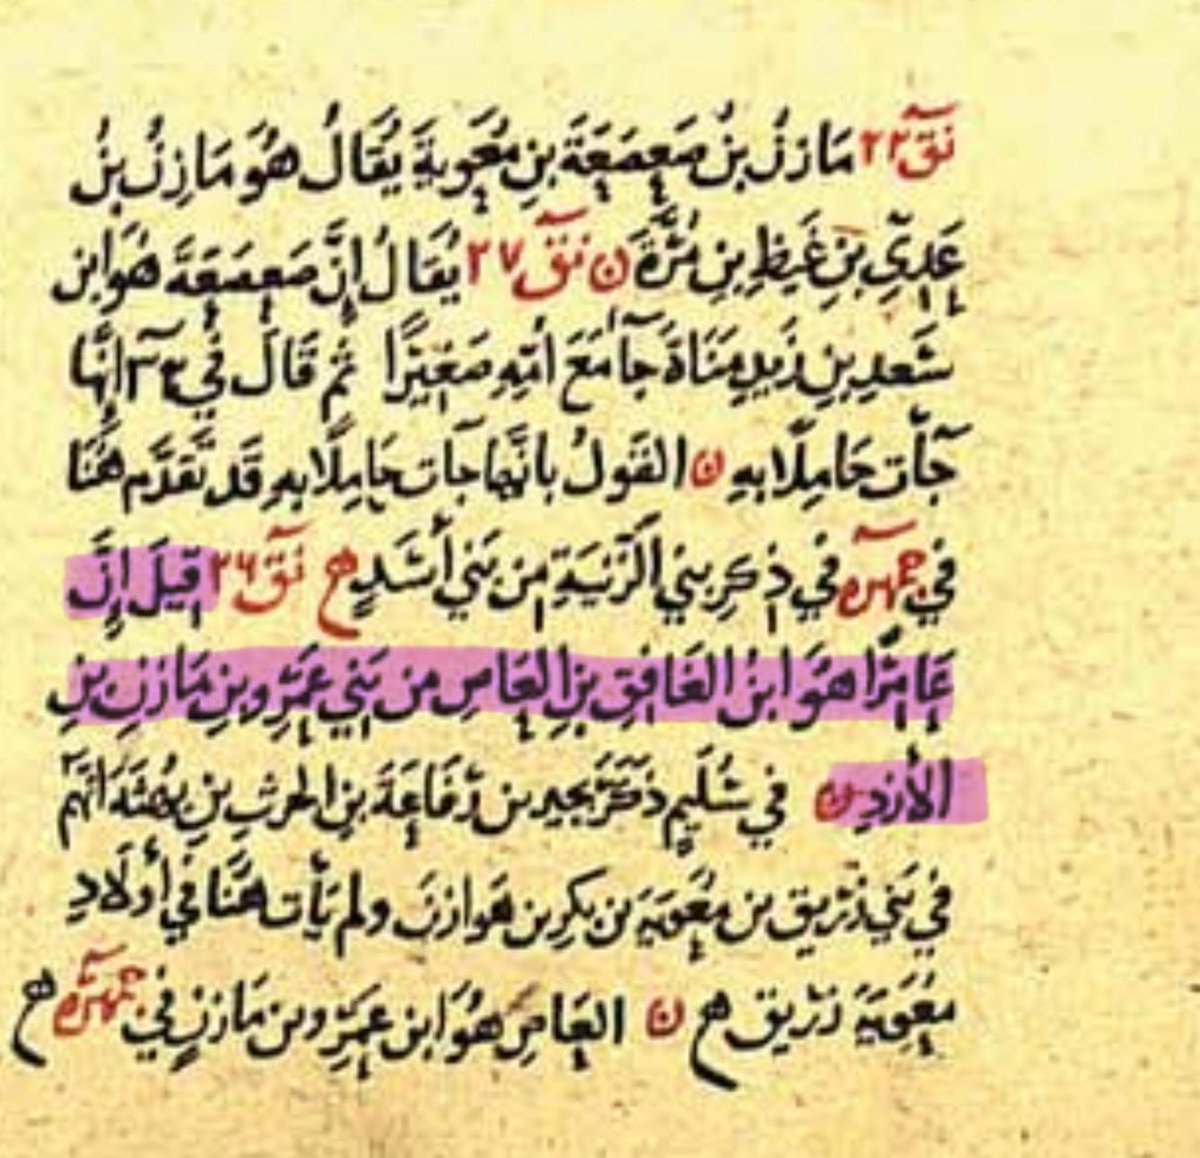 نق ٢٢ مَازِنُ بنُ صَعصَعَةَ بنِ مُعَوِيةَ يُقَالُ هُوَ مَازِنُ بنُ
عَدِيِّ بنِ غَيظِ بنِ مُرَّةَ ن نق ٢٧ يُقَالُ إنَّ صَعصَعَةَ هُوَ ابن
سَعدِ بنِ زَيدِ مَنَاةَ جآ مَعَ أُمِّهِ صَغيرًا ثم قَالَ في إنَّها
جآت حَامِلًا بهِ ن القَولُ بانَّها جَات حَامِلًا بهِ قَد تَقَدَّم هُنَا
في جمهرة في ذِكرِ بني الزنيَةِ من بَني أَسَدٍ ه نق ٢٦ قِيلَ إنَّ
عَامِرًا هُوَ ابنُ الغَافِقِ بنِ العَاصِ من بَنِي عَمْرِو بنِ مَازِنِ بنِ
الأزدِ ن في سُلَيمٍ ذَكَرَ بجير بن رفَاعَةَ بنِ الحرثِ بنِ بُهثَةَ انَّهم
في بَني زُرَيق بن مُعَوِيَةَ بن بكرِ بن هَوازنَ ولم يَأت هُنَا في أولَادِ
مُعَوِيَةَ زُرَيق ه ن العَاصِ هُوَ ابن عَمْرِو بن مَازنٍ في جمهرة ه